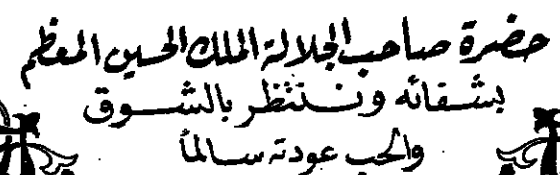 حضرة صاحب الجلالة الملك الحسين المعظم
بشفائه وننتظر بالشوق
والحب عودته سالماً